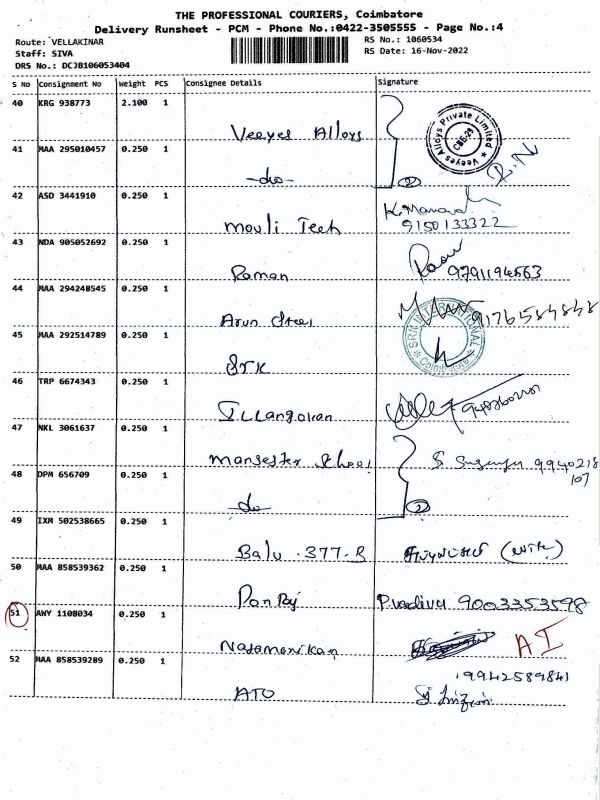 THE PROFESSIONAL COURIERS, Coimbatore
Delivery Runsheet - PCM - Phone No.:0422-3505555 - Page No.:4
Route: VELLAKINAR
Staff: SIVA
DRS No.: DCJB106053404
RS No.: 1060534
RS Date: 16-Nov-2022
S No Consignment No Weight PCS Consignee Details Signature
40 KRG 938773 2.100 1 Veeyes Alloys
Veeyes Alloys Private Limited
CBE-29
R.N
41 MAA 295010457 0.250 1 -do-
2
42 ASD 3441910 0.250 1 Mouli Tech
9150133322
43 NDA 905052692 0.250 1 Raman
9791194563
44 MAA 294248545 0.250 1 Arun Steel
9176584848
45 MAA 292514789 0.250 1 STK
SRN INTERNATIONAL
Coimbatore
46 TRP 6674343 0.250 1 Illangovan
47 NKL 3061637 0.250 1 Mansester School
9940218
107
48 DPM 656709 0.250 1 -do-
2
49 IXM 502538665 0.250 1 Balu .377-R
(wife)
50 MAA 858539362 0.250 1 Pon Raj
P.vadivu 9003353598
51 AWY 1108034 0.250 1 Natamanikan
AI
52 MAA 858539289 0.250 1 ATO
19942589841